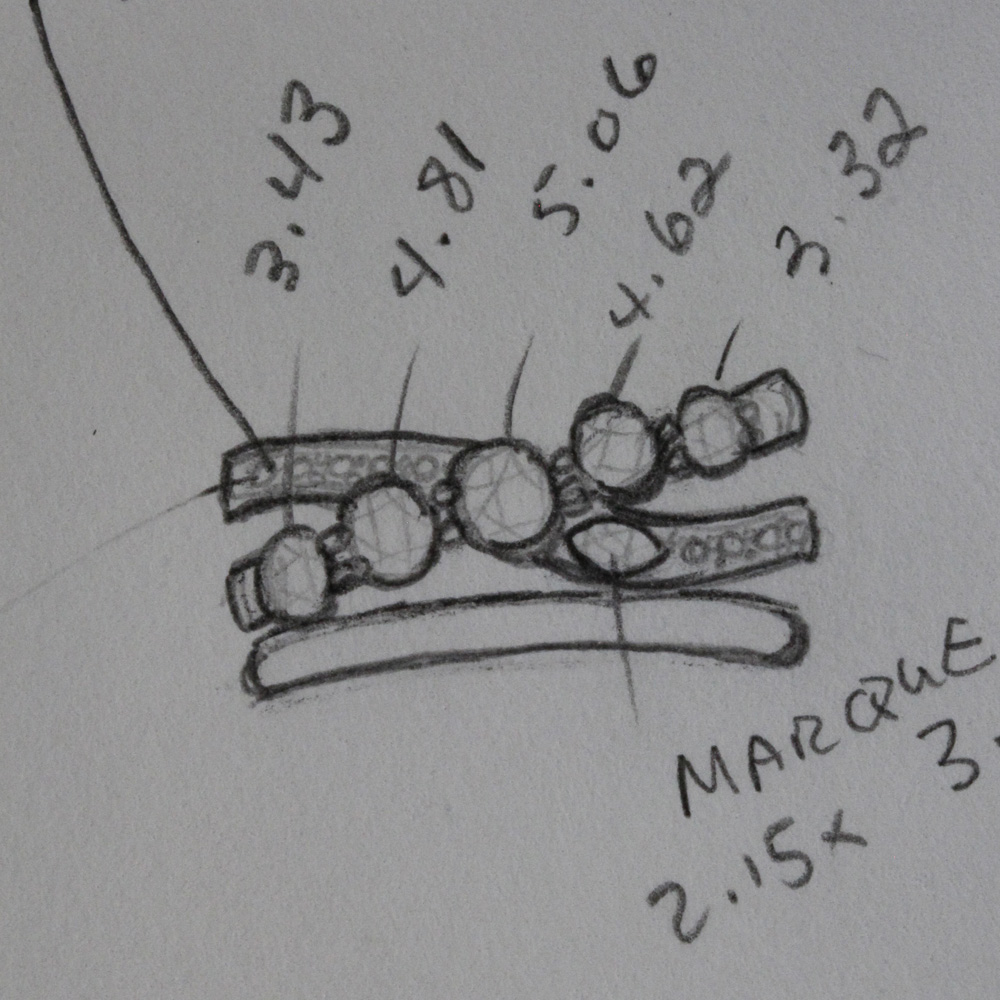 3.43
4.81
5.06
4.62
3.32
MARQUE
3.
2.15x